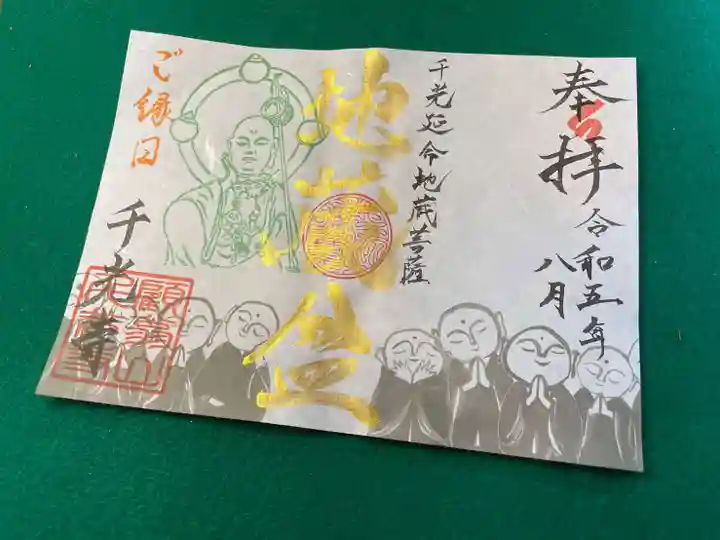 奉拝
令和五年
八月
千光延命地蔵菩薩
地蔵
ご縁日
千光寺